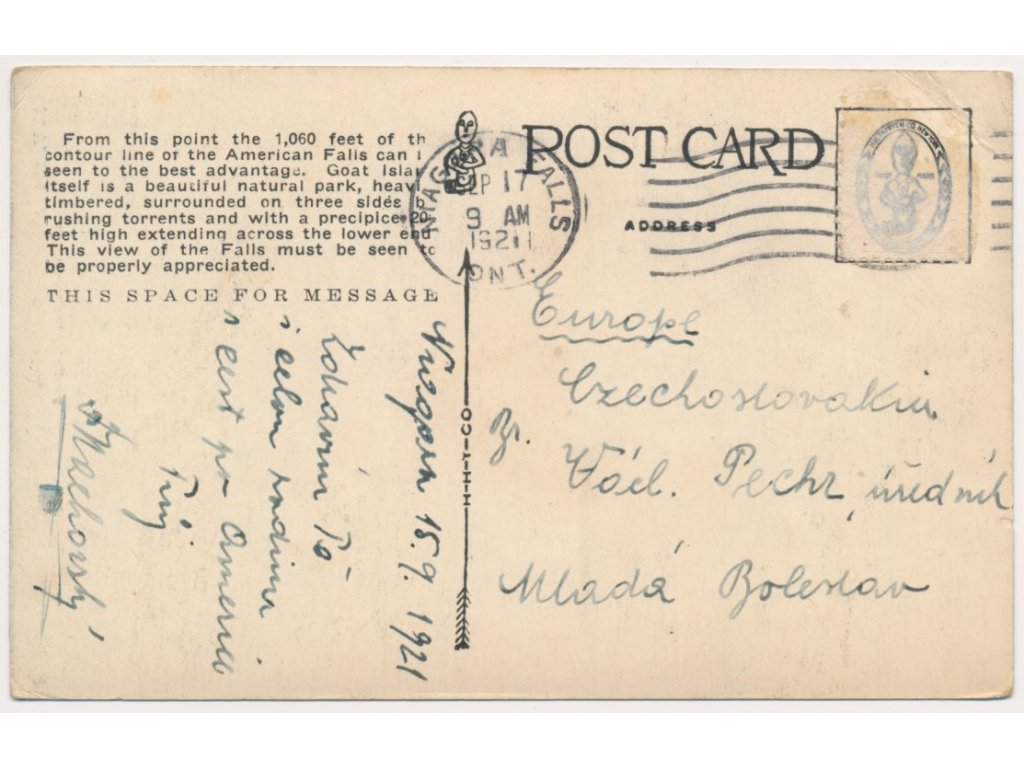 From this point the 1,060 feet of th
contour line of the American Falls can
seen to the best advantage. Goat Islan
itself is a beautiful natural park, heavi
timbered, surrounded on three sides
rushing torrents and with a precipice 20
feet high extending across the lower end
This view of the Falls must be seen to
be properly appreciated.
THIS SPACE FOR MESSAGE
NIAGARA FALLS
SEP 17
9 AM
1921
ONT.
POST CARD
ADDRESS
H-H-T-CO
Europe
Czechoslovakia
Václ. Pechr, úředník
Mladá Boleslav
15.9. 1921
Zdravím Tě
s celou rodinu
s cest po Americe
Tvůj